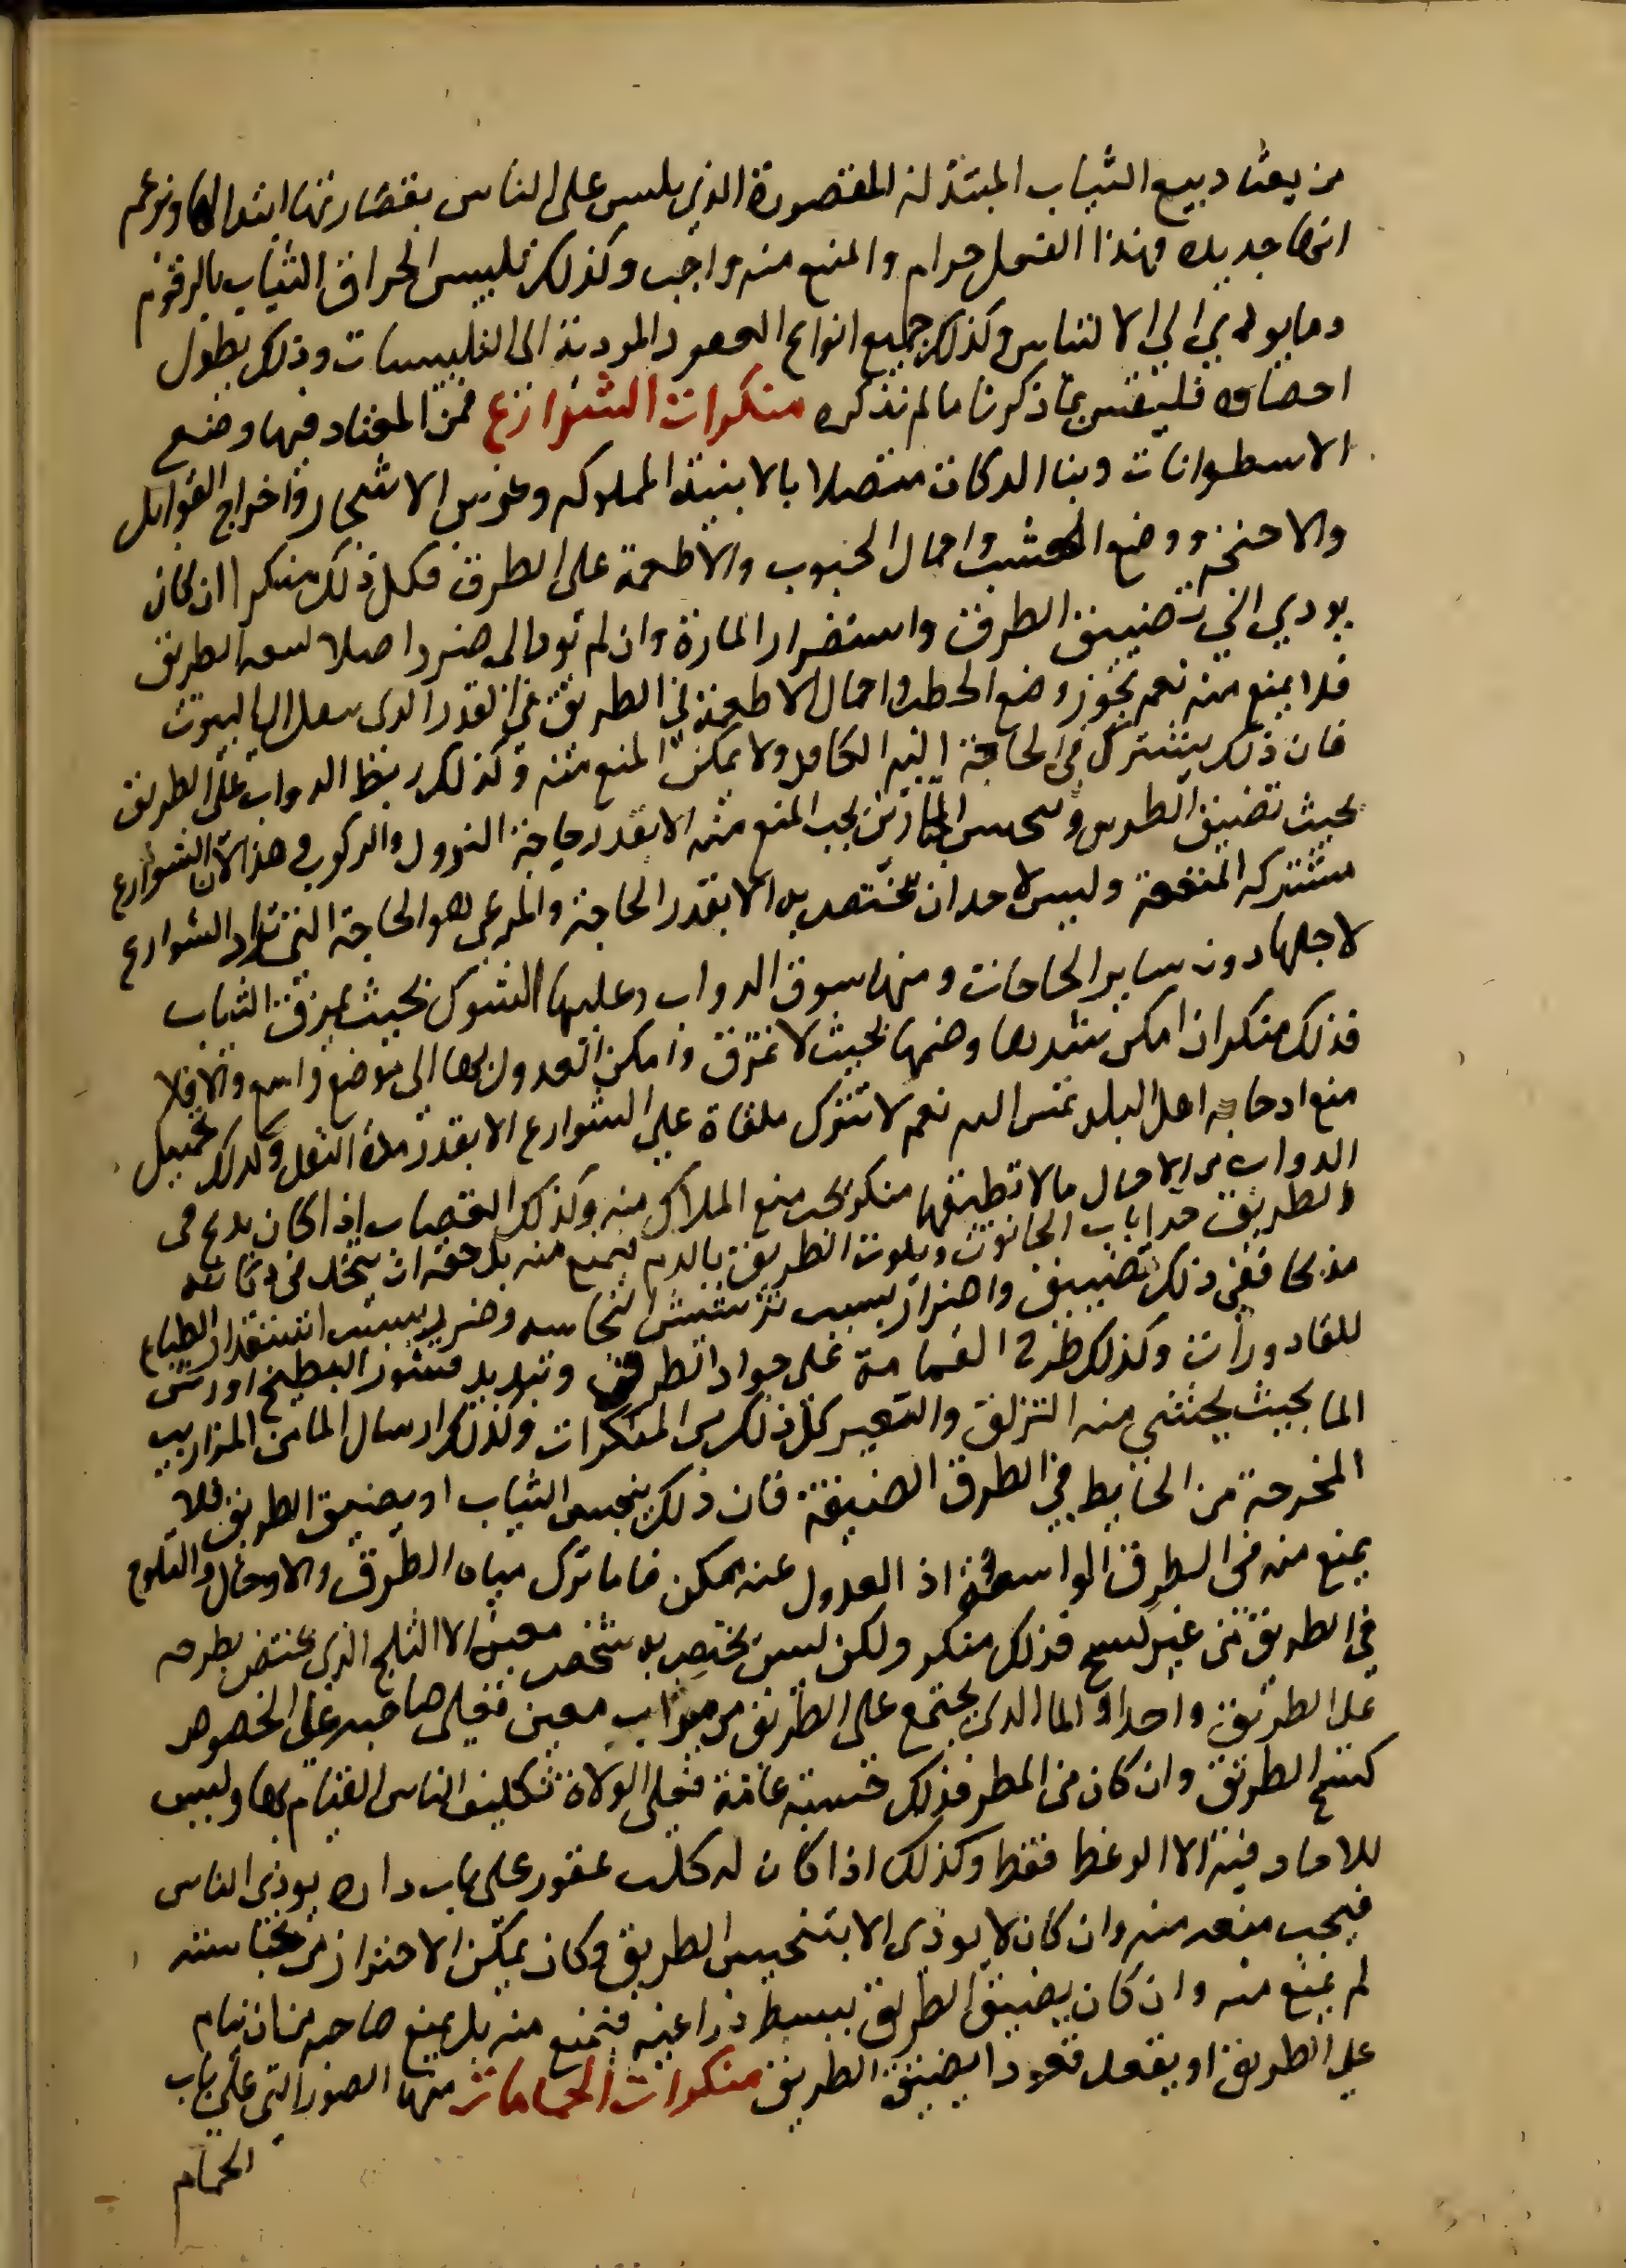 من يعتاد بيع الثياب المبتذلة المقصورة الذي يلبس على الناس بقصارتها ابتذالها ويزعم
انها جديده فهذا الفعل حرام والمنع منه واجب وكذلك تلبيس انخراق الثياب بالرفو
وما يودي الي الالتباس وكذلك جميع انواع العقود المودية الى التلبيسات وذلك يطول
احصاوه فليقس بما ذكرنا ما لم نذكره منكرات الشوارع فمن المعتاد فيها وضع
الاسطوانات وبنا الدكات متصلا بالابنية المملوكه وغرس الاشجار واخراج القوابل
والاجنحة ووضع الخشب واحمال الحبوب والاطعمة على الطرق فكل ذلك منكر ان كان
يودي الي تضييق الطرق واستضرار المارة وان لم تود الى ضرر اصلا لسعه الطريق
فلا يمنع منه نعم يجوز وضع الحطب واحمال الاطعمة في الطريق في القدر الذى ينقل الى البيوت
فان ذلك يشترك في الحاجة اليه الكافه ولا يمكن المنع منه وكذلك ربط الدواب على الطريق
بحيث تضيق الطريق وينجس المارين يجب المنع منه الا بقدر حاجة النزول والركوب وهذا لان الشوارع
مشتركه المنفعة وليس لاحد ان يختص به الا بقدر الحاجة والمرعي هو الحاجة التي تراد الشوارع
لاجلها دون ساير الحاجات ومنها سوق الدواب وعليها الشوك بحيث يمزق الثياب
فذلك منكر ان امكن شدها وضمها بحيث لا تمزق وامكن العدول بها الى موضع واسع والا فلا
منع اذ حاجه اهل البلد تمس اليه نعم لا تترك ملقاة على الشوارع الا بقدر مدة النقل وكذلك تحميل
الدواب من الاحمال ما لا تطيقها منكر يجب منع الملاك منه وكذلك القصاب اذا كان يذبح في
الطريق حذا باب الحانوت ويلوث الطريق بالدم يمنع منه بل حقه ان يتخذ في دكانه
مذبحا ففي ذلك تضييق واضرار بسبب ترشيش النجاسه وضرر بسبب استقذار الطباع
للقاذورات وكذلك طرح القمامة على جواد الطرق وتبديد قشور البطيخ او رش
الما بحيث يخشى منه التزلق والتعثر كل ذلك من المنكرات وكذلك ارسال الما من المزاريب
المخرجة من الحايط في الطرق الضيقة فان ذلك ينجس الثياب او يضيق الطريق فلا
يمنع منه في الطرق الواسعة اذ العدول عنه ممكن فاما ترك مياه الطرق والاوحال والثلوج
في الطريق من غير كسح فذلك منكر ولكن ليس يختص به شخص معين الا الثلج الذي يختص بطرحه
على الطريق واحد او الما الذى يجتمع على الطريق من ميزاب معين فعلى صاحبه على الخصوص
كسح الطريق وان كان من المطر فذلك حسبة عامة فعلى الولاة تكليف الناس القيام بها وليس
للاحاد فيه الا الوعظ فقط وكذلك اذا كان له كلب عقور على باب داره يوذى الناس
فيجب منعه منه وان كان لا يوذى الا بتنجيس الطريق وكان يمكن الاحتراز من نجاسته
لم يمنع منه وان كان يضيق الطريق ببسط ذراعيه فيمنع منه بل يمنع صاحبه من ان ينام
على الطريق او يقعد قعودا يضيق الطريق منكرات الحمامات منها الصور التي على باب
الحمام